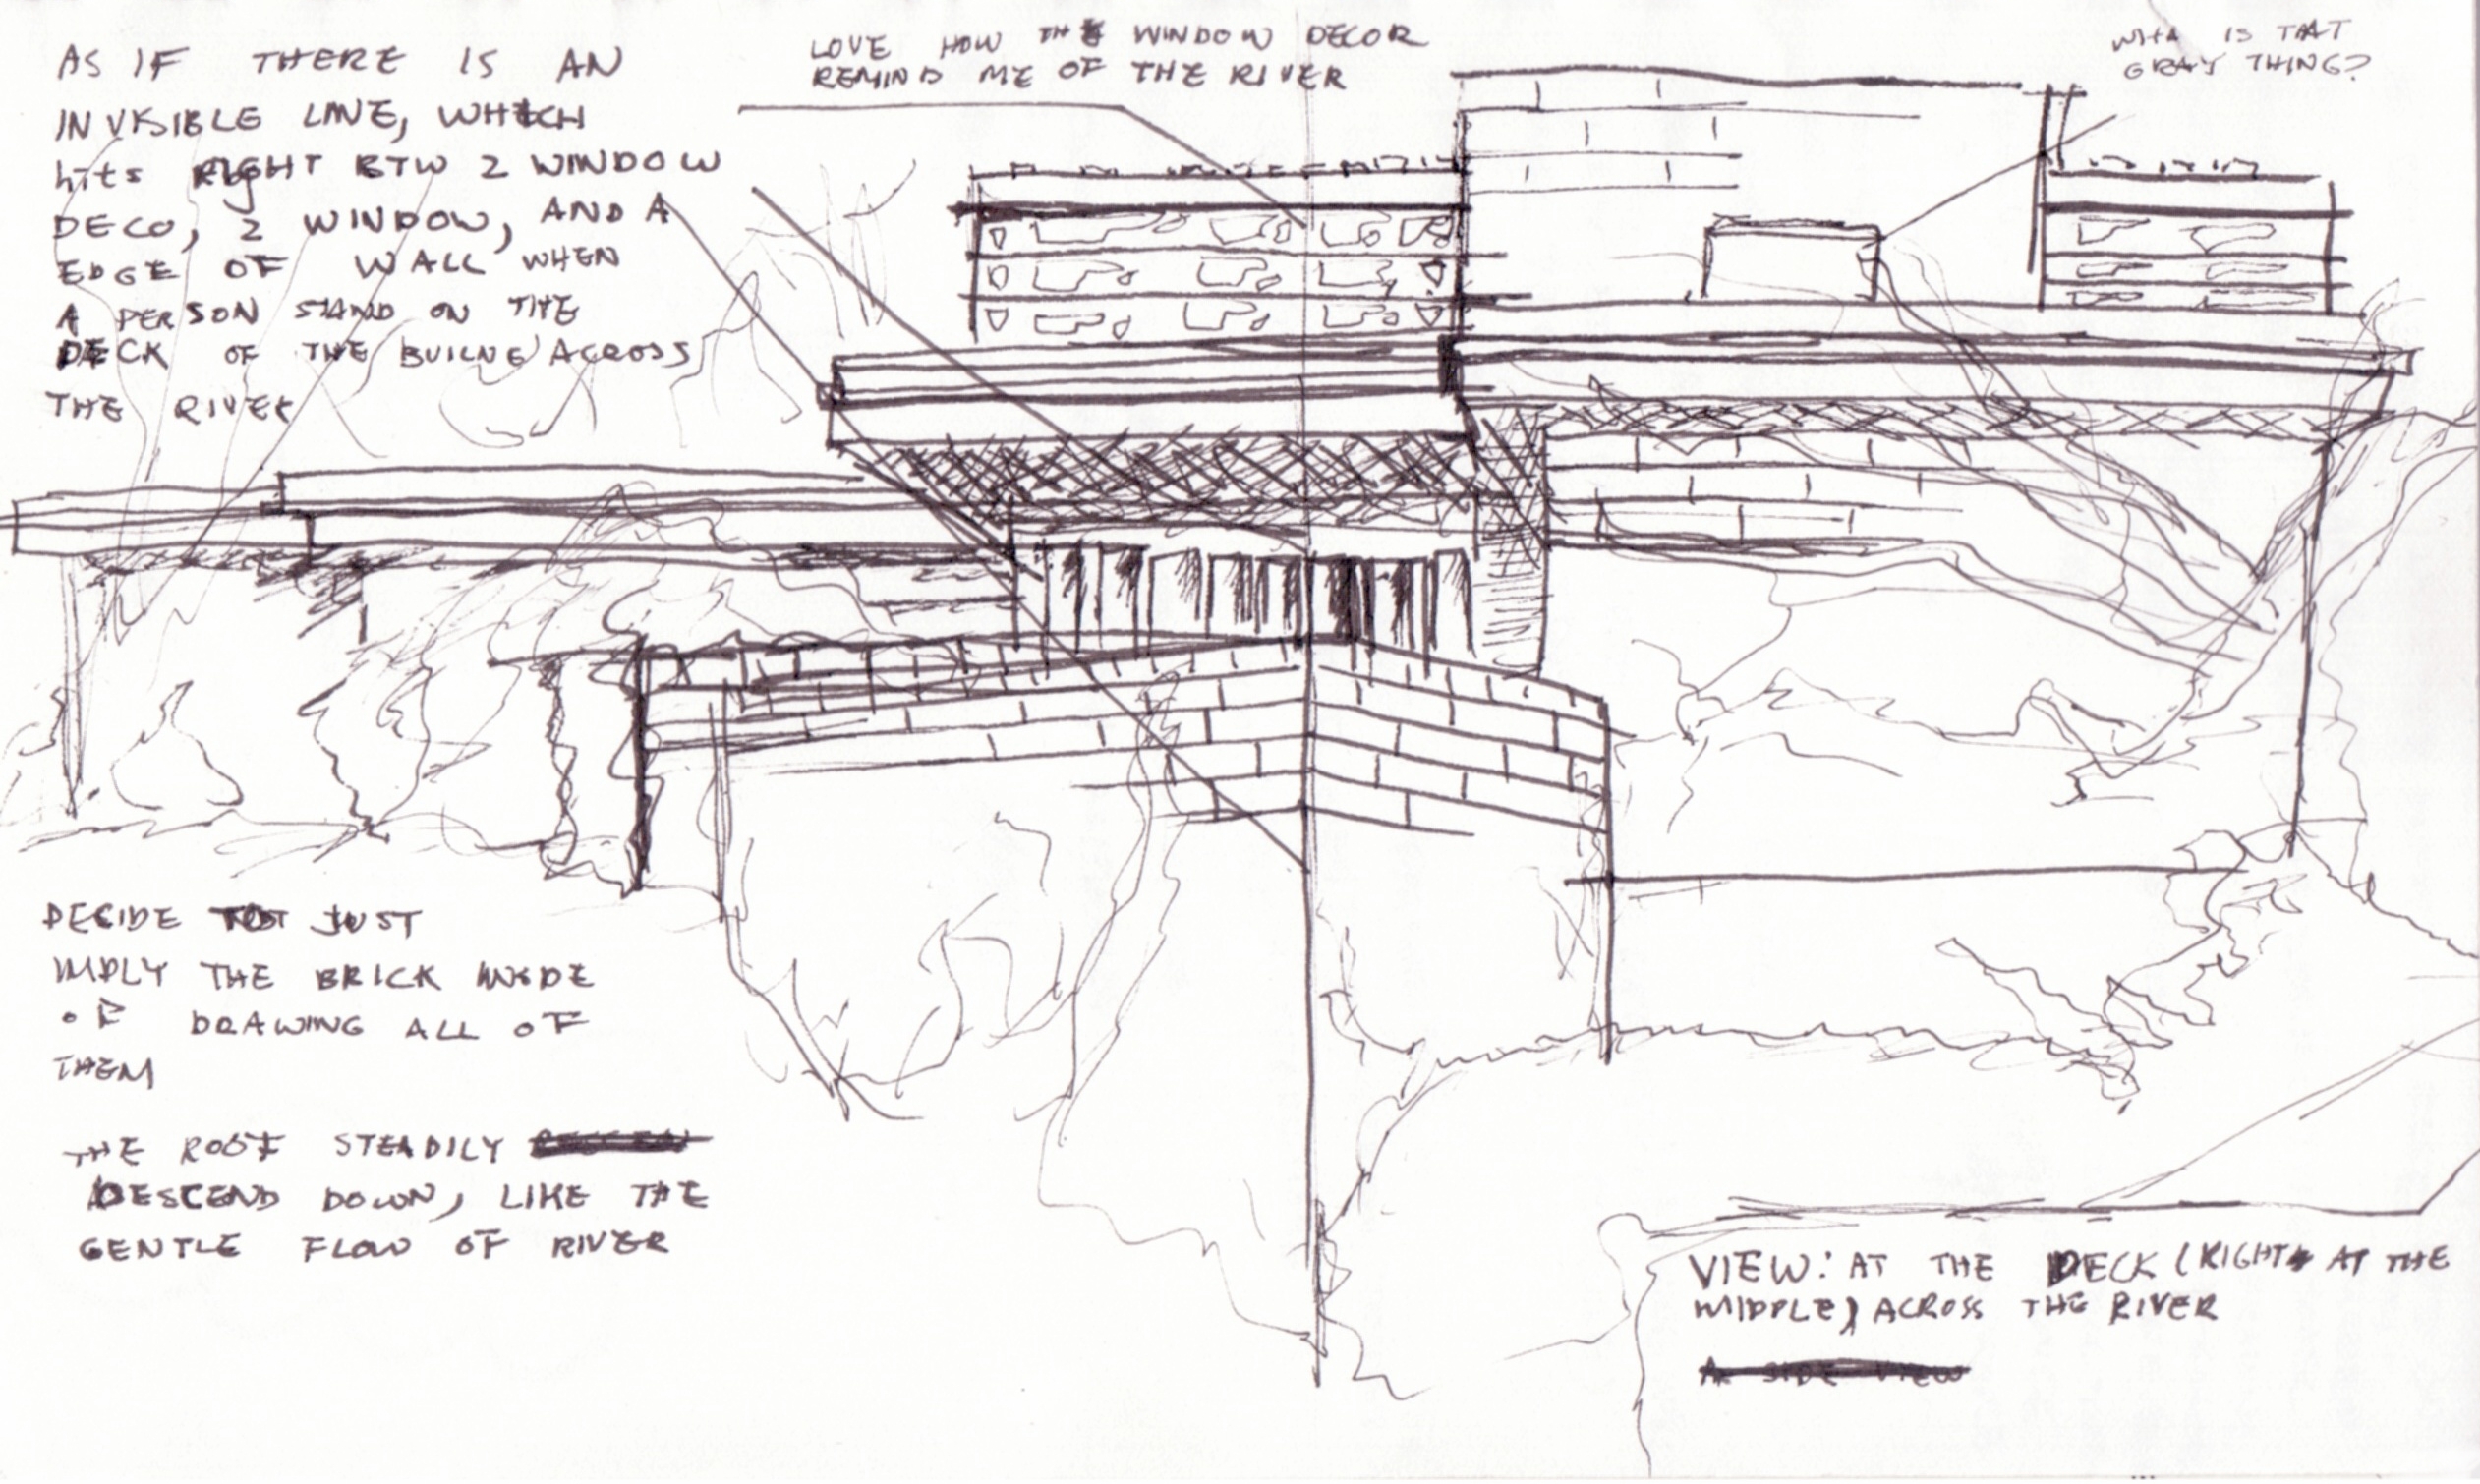 AS IF THERE IS AN
INVISIBLE LINE, WHICH
hits RIGHT BTW 2 WINDOW
DECO, 2 WINDOW, AND A
EDGE OF WALL WHEN
A PERSON STAND ON THE
DECK OF THE ACROSS
THE RIVER
LOVE HOW THE WINDOW DECOR
REMIND ME OF THE RIVER
IS THAT
GRAY THING?
DECIDE TO JUST
IMPLY THE BRICK
OF DRAWING ALL OF
THEM
THE ROOF STEADILY
DESCEND DOWN, LIKE THE
GENTLE FLOW OF RIVER
VIEW: AT THE DECK (RIGHT AT THE
MIDDLE) ACROSS THE RIVER
A SIDE VIEW